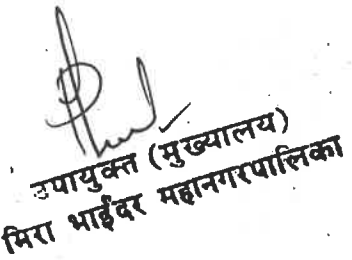 उपायुक्त (मुख्यालय)
मिरा भाईंदर महानगरपालिका